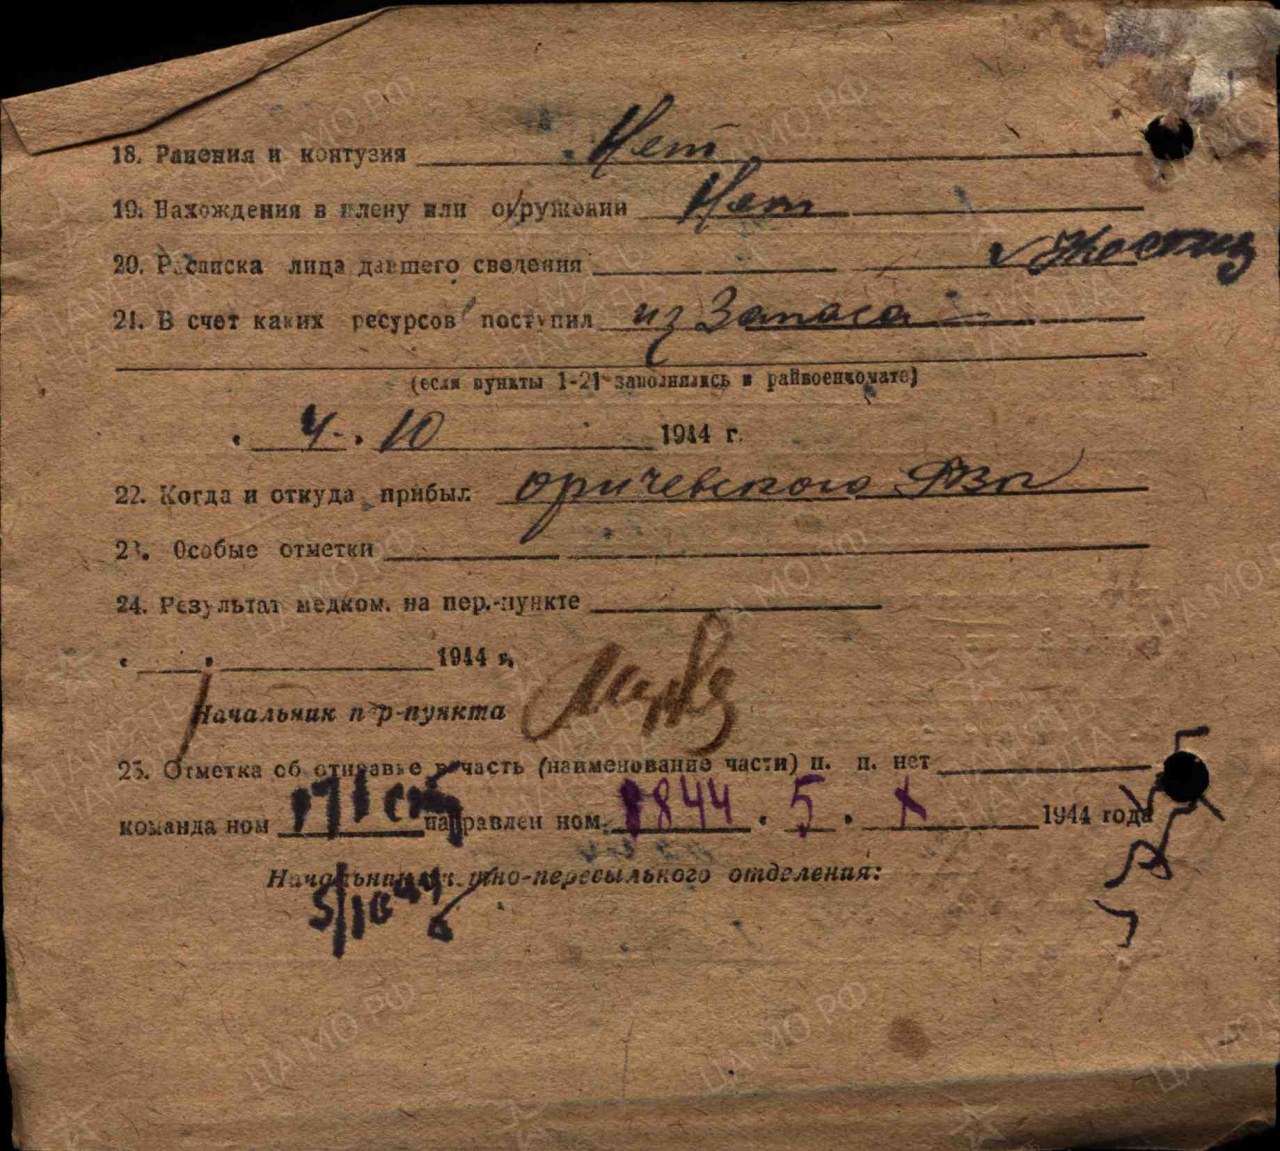 18. Ранения и контузия Нет
19. Нахождения в плену или окружении Нет
20. Расписка лица давшего сведения
21. В счет каких ресурсов поступил из Запаса
(если пункты 1-21 заполнялись в райвоенкомате)
4. 10 1944 г.
22. Когда и откуда прибыл оричевского РВК
23. Особые отметки
24. Результат медком. на пер.-пункте
1944 г.
Начальник пер-пункта
25. Отметка об отправке в часть (наименование части) п. п. нет
команда ном 171 направлен ном. 8844 . 5 . X 1944 года
Начальник -пересылького отделения:
5/10 44
ЦАМО.РФ
ПАМЯТЬ НАРОДА